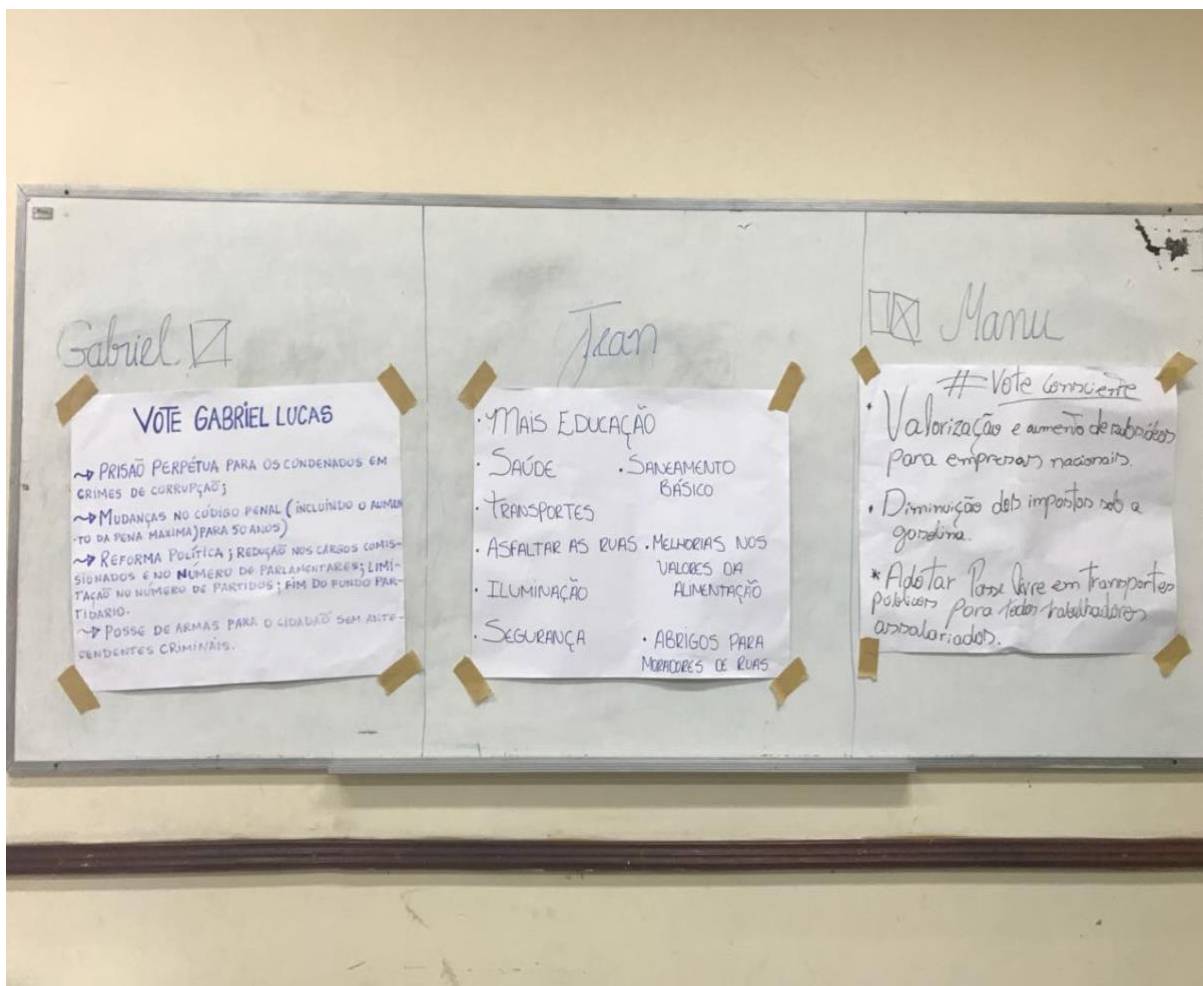 Gabriel
VOTE GABRIEL LUCAS
PRISAÕ PERPÉTUA PARA OS CONDENADOS EM
CRIMES DE CORRUPÇAÕ;
MUDANÇAS NO CÓDIGO PENAL (INCLUÍNDO O AUMEN
-TO DA PENA MAXIMA) PARA 50 ANOS)
REFORMA POLÍTICA; REDUÇAÕ NOS CARGOS COMIS-
SIONADOS E NO NÚMERO DE PARLAMENTARES; LIMI-
TAÇAÕ NO NÚMERO DE PARTIDOS; FIM DO FUNDO PAR-
TIDÁRIO.
POSSE DE ARMAS PARA O CIDADAÕ SEM ANTE-
CENDENTES CRIMINAIS.
Jean
• MAIS EDUCAÇÃO
• SAÚDE
• TRANSPORTES
• ASFALTAR AS RUAS
• ILUMINAÇÃO
• SEGURANÇA
• SANEAMENTO
BÁSICO
• MELHORIAS NOS
VALORES DA
ALIMENTAÇÃO
• ABRIGOS PARA
MORADORES DE RUAS
Manu
# Vote Consciente
• Valorização e aumento de subsídeos
para empresas nacionais.
• Diminuição dos impostos sob a
gasolina.
* Adotar Passe livre em transportes
públicos para todos trabalhadores
assalariados.